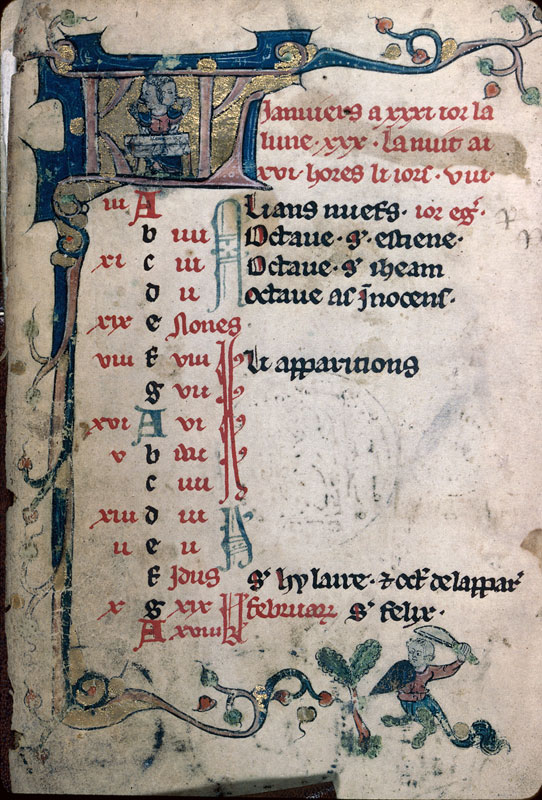 KL
Januiers a xxxi ior la
lune · xxx · la nuit at
xvi · hores li iors · viii ·
iii A Li ans nuefs · ior eg̃ ·
b iiii Octaue · s' · estiene ·
xi c iii Octaue · s' iheam
d ii octaue as Jnocens ·
xix e Nones
viii f viii Le apparitions
g vii
xvi A vi
v b
c iiii
xiii d iii
ii e ii
f Jdus s' hylaire · ⁊ oct' de lappar'
x g xix februarii s' felix ·
A xviii